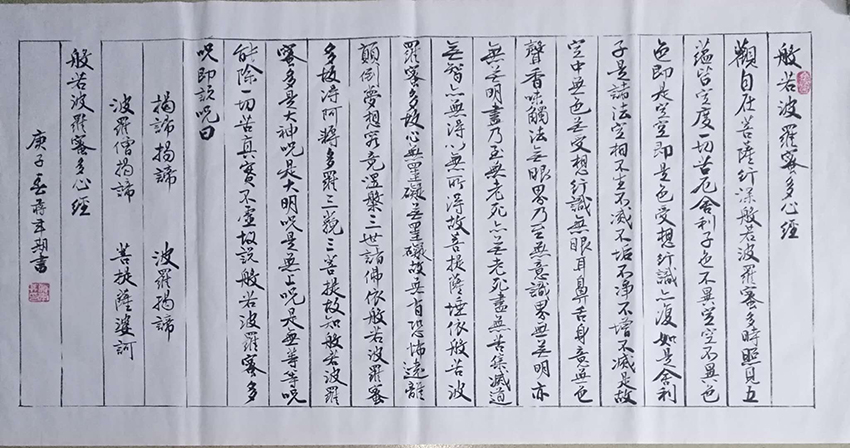 般若波羅蜜多心經
觀自在菩薩行深般若波羅蜜多時照見五
蘊皆空度一切苦厄舍利子色不異空空不異色
色即是空空即是色受想行識亦復如是舍利
子是諸法空相不生不滅不垢不淨不增不減是故
空中無色無受想行識無眼耳鼻舌身意無色
聲香味觸法無眼界乃至無意識界無無明亦
無無明盡乃至無老死亦無老死盡無苦集滅道
無智亦無得以無所得故菩提薩埵依般若波
羅蜜多故心無罣礙無罣礙故無有恐怖遠離
顛倒夢想究竟涅槃三世諸佛依般若波羅蜜
多故得阿耨多羅三藐三菩提故知般若波羅
蜜多是大神呪是大明呪是無上呪是無等等呪
能除一切苦真實不虛故説般若波羅蜜多
呪即説呪曰
揭諦揭諦 波羅揭諦
波羅僧揭諦 菩提薩婆訶
般若波羅蜜多心經
庚子 書